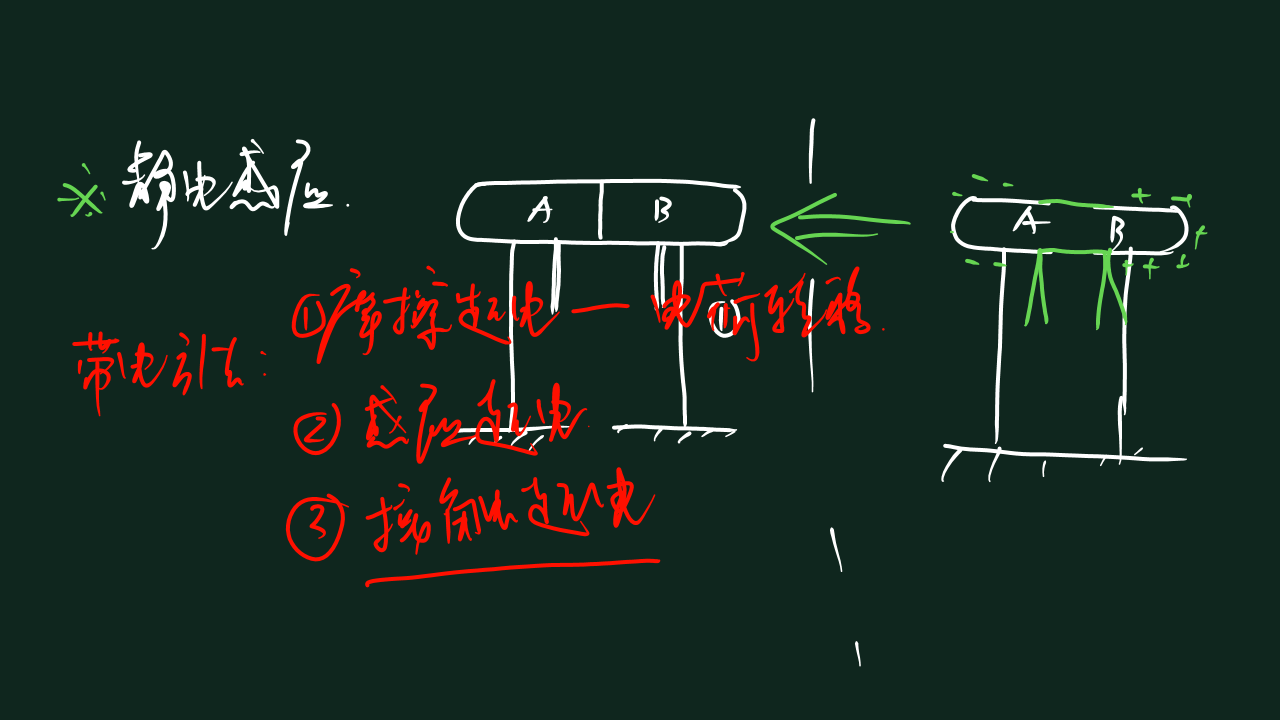 ※ 静电感应.
A B
A B
带电方法:
①摩擦起电 — 电荷转移.
①
② 感应起电.
③ 接触起电